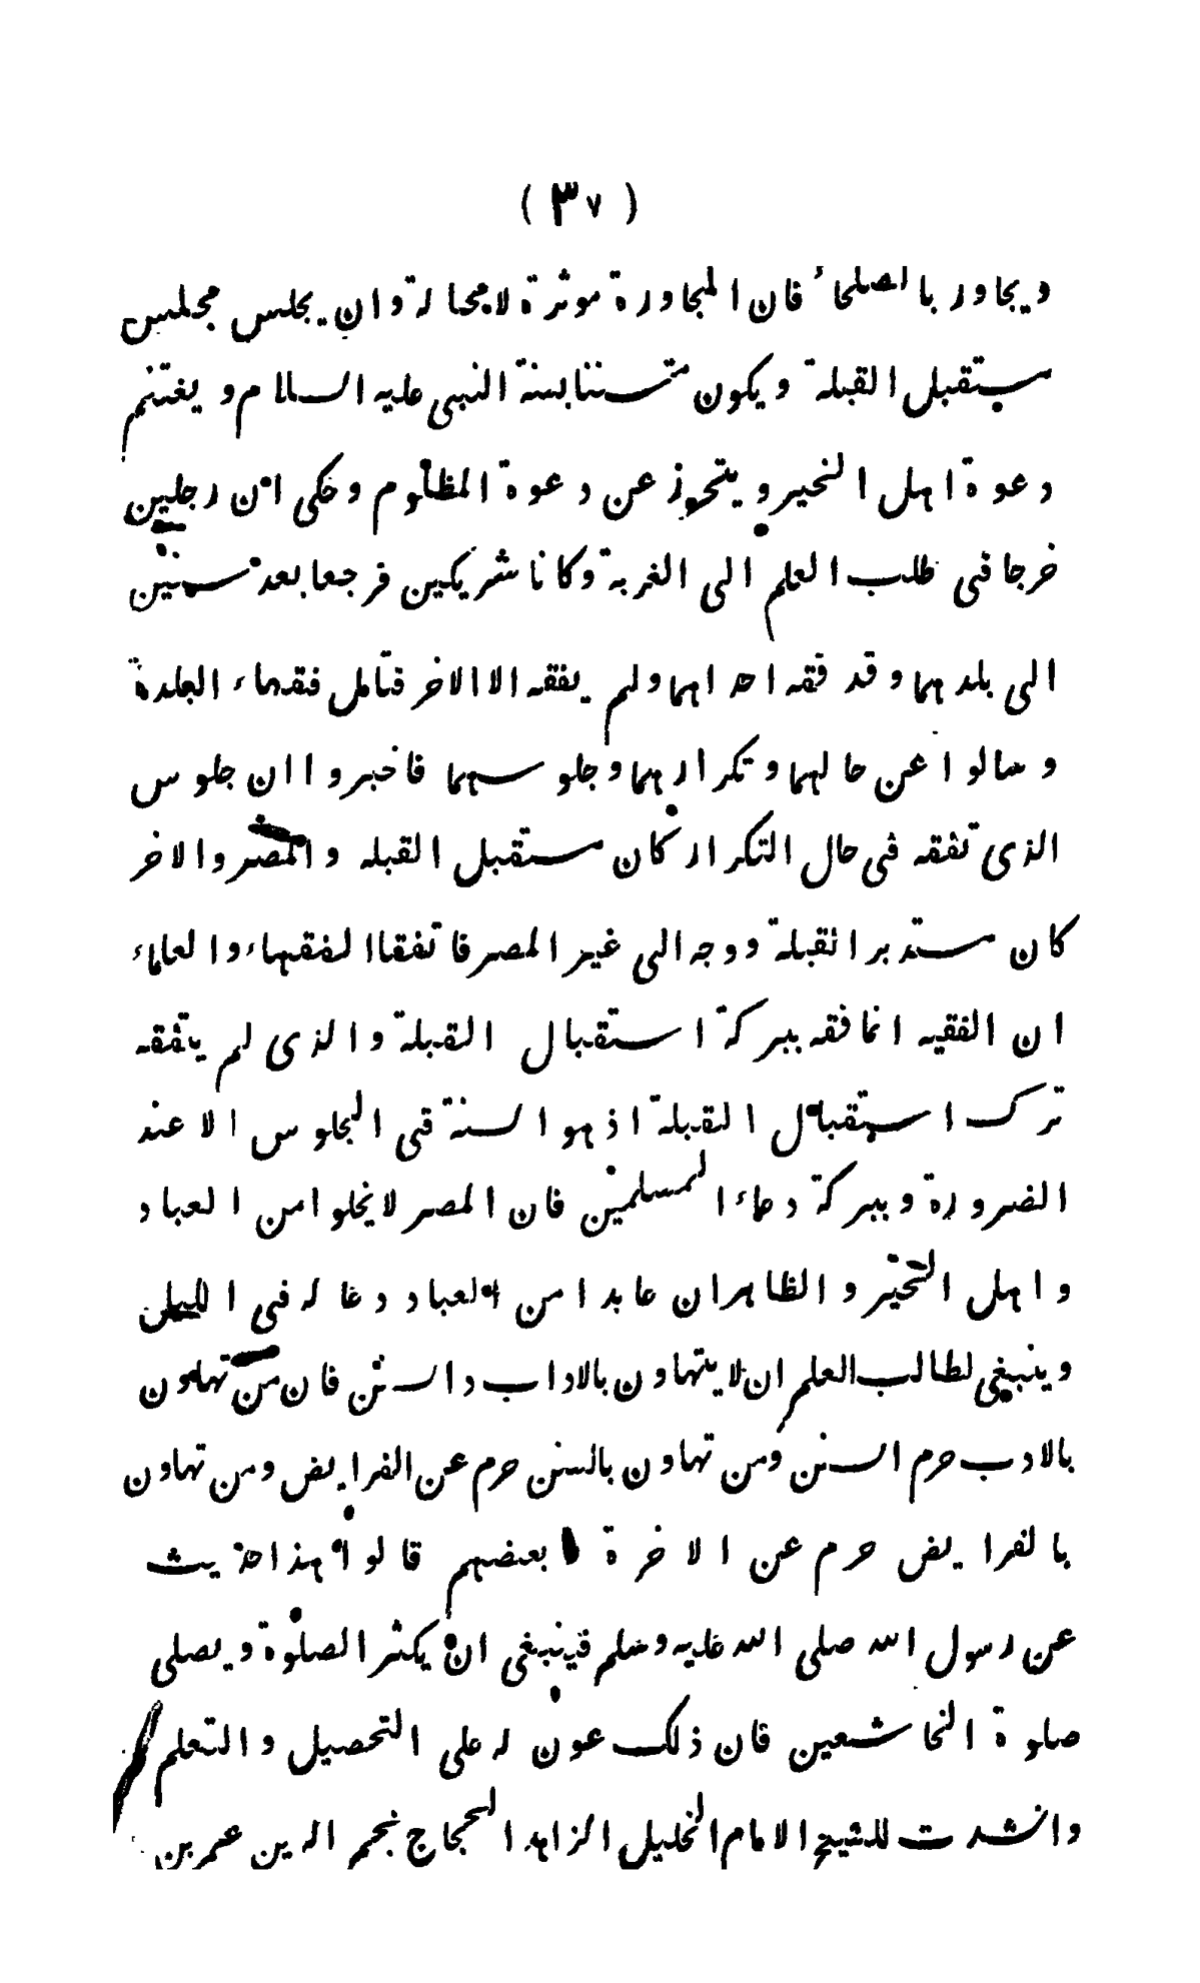 ( ٣٧ )
ويجاور بالصلحاء فان المجاورة موثرة لامحالة وان يجلس مجلس
مستقبل القبلة ويكون مستننا بسنة النبى عليه السلام ويغتنم
دعوة اهل الخير ويتحرز عن دعوة المظلوم وحكى ان رجلين
خرجا فى طلب العلم الى الغربة وكانا شريكين فرجعا بعد سنين
الى بلدهما وقد فقه احدهما ولم يفقه الاالاخر فتامل فقهاء البلدة
وسالوا عن حالهما وتكرارهما وجلوسهما فاخبروا ان جلوس
الذى تفقه فى حال التكرار كان مستقبل القبله والمصر والاخر
كان مستدبر القبلة ووجه الى غير المصر فاتفقا الفقهاء والعلماء
ان الفقيه انما فقه ببركة استقبال القبلة والذى لم يتفقه
ترك استقبال القبلة اذ هو السنة فى الجلوس الا عند
الضرورة وببركة دعاء المسلمين فان المصر لايخلوا من العباد
واهل الخير والظاهران عابدا من العباد دعا له فى الليل
وينبغى لطالب العلم ان لايتهاون بالاداب والسنن فان من تهاون
بالادب حرم السنن ومن تهاون بالسنن حرم عن الفرايض ومن تهاون
بالفرايض حرم عن الاخرة بعضهم قالوا هذا حديث
عن رسول الله صلى الله عليه وسلم فينبغى ان يكثر الصلوة ويصلى
صلوة الخاشعين فان ذلك عون له على التحصيل والتعلم
وانشدت للشيخ الامام الخليل الزاهد الحجاج نجم الدين عمر بن